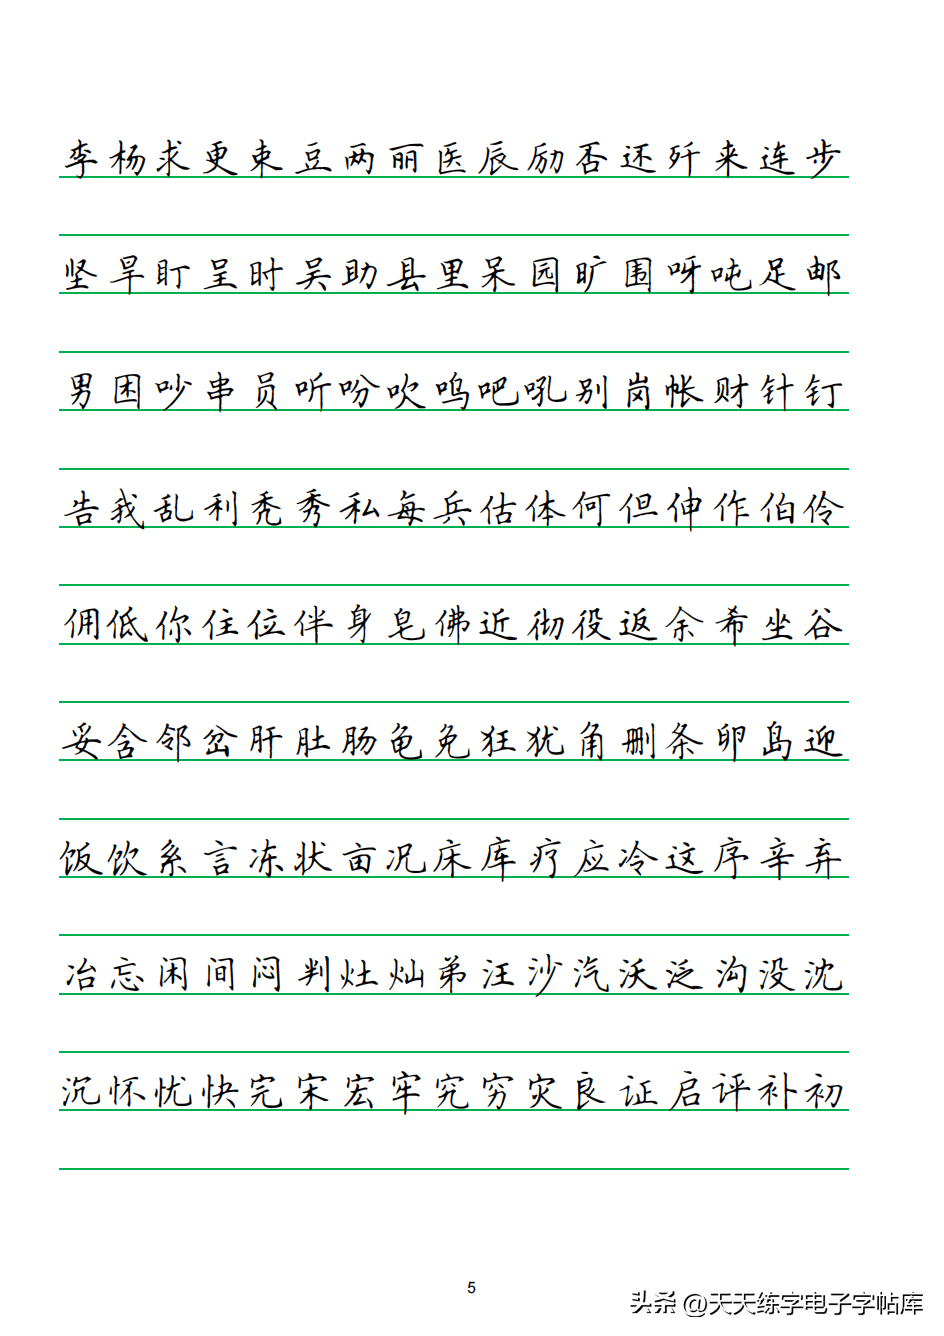 李杨求更束豆两丽医辰励否还歼来连步
坚旱盯呈时吴助县里呆园旷围呀吨足邮
男困吵串员听吩吹呜吧吼别岗帐财针钉
告我乱利秃秀私每兵估体何但伸作伯伶
佣低你住位伴身皂佛近彻役返余希坐谷
妥含邻岔肝肚肠龟免狂犹角删条卵岛迎
饭饮系言冻状亩况床库疗应冷这序辛弃
冶忘闲间闷判灶灿弟汪沙汽沃泛沟没沈
沉怀忧快完宋宏牢究穷灾良证启评补初
5
头条 @天天练字电子字帖库